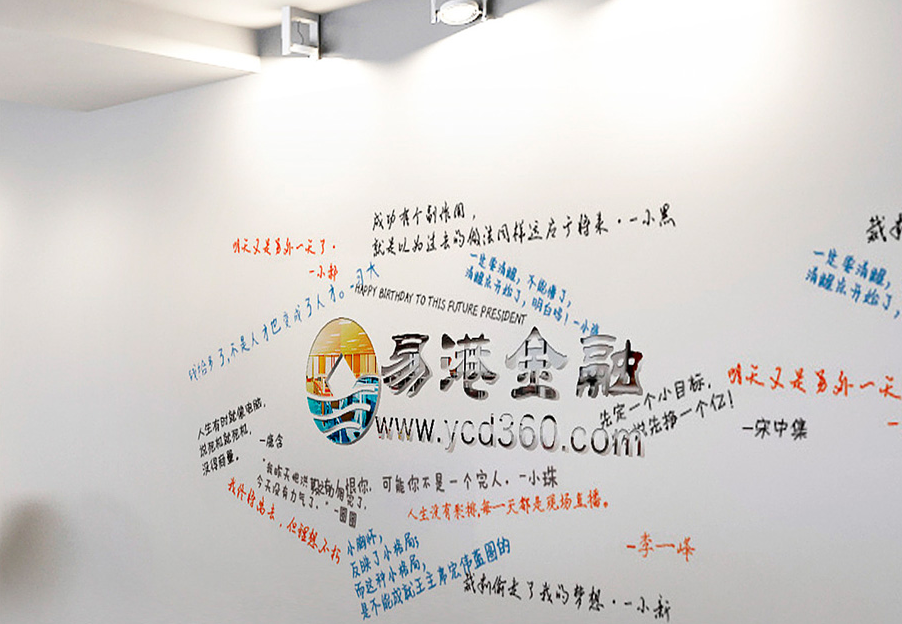 成功有个副作用，
就是以为过去的做法同样适应于将来·一小黑
明天又是另外一天了·
一小郝
钱给多了,不是人才也变成了人才。
一定要清醒，不能懵了，
清醒点开始了，明白吗！一小
HAPPY BIRTHDAY TO THIS FUTURE PRESIDENT
易港金融
www.ycd360.com
一定要清醒，
清醒点开始了，
明天又是另外一天
先定一个小目标，
说先挣一个亿！
一宋中集
人生有时就像电脑，
说死机就死机，
没得商量。
一唐含
我昨天
恨你，可能你不是一个完人。一小珠
今天没有力气了。
一圆圆
人生没有彩排,每一天都是现场直播。
但理想不朽
小胸怀，
反映了小格局；
而这种小格局，
是不能成就王主席宏伟蓝图的
一李一峰
裁判偷走了我的梦想·一小新